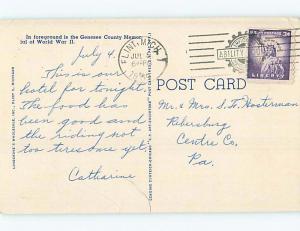 In foreground is the Genesee County Memor-
ial of World War II.
July 4.
This is our
hotel for tonight.
The food has
been good and
the riding not
too tiresome yet.
Catharine
POST CARD
Mr. & Mrs. S. F. Hosterman
Rebersburg
Centre Co.
Pa.
FLINT, MICH.
JUL
ABILITY
3¢
LIBERTY